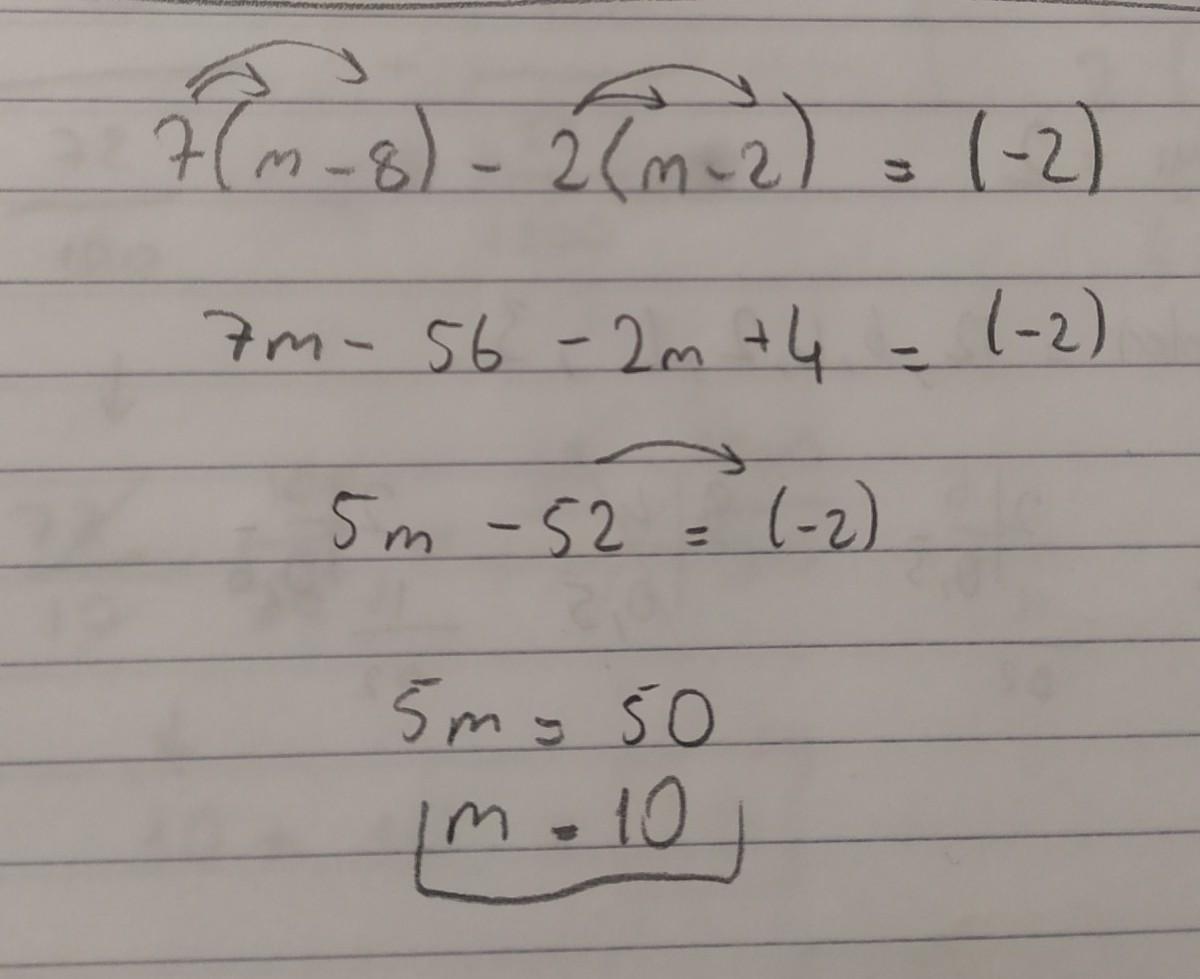 7(m-8) - 2(m-2) = (-2)
7m - 56 - 2m + 4 = (-2)
5m - 52 = (-2)
5m = 50
m = 10